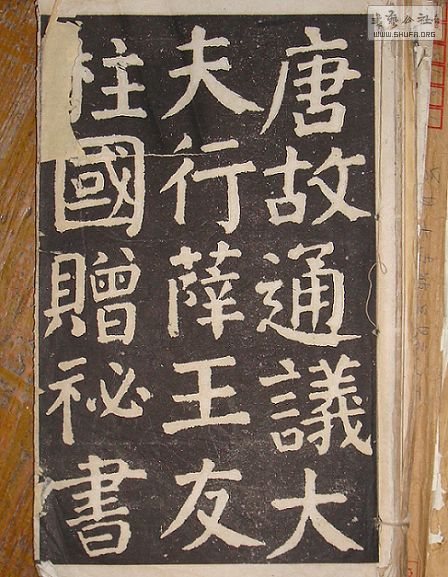 唐故通議大
夫行薛王友
柱國贈祕書
WWW.SHUFA.ORG